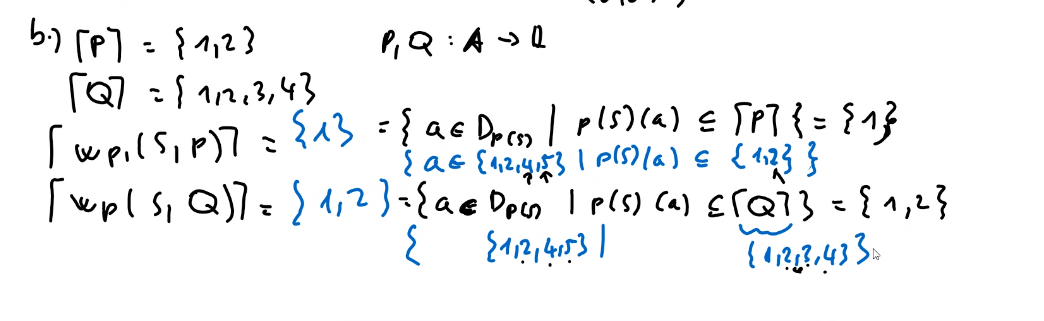 b.) ⌈P⌉ = {1,2} P, Q : A → 𝕃
⌈Q⌉ = {1,2,3,4}
⌈wp(S,P)⌉ = {1} = {a ∈ D_p(S) | p(S)(a) ⊆ ⌈P⌉} = {1}
{a ∈ {1,2,4,5} | p(S)(a) ⊆ {1,2}}
⌈wp(S, Q)⌉ = {1,2} = {a ∈ D_p(S) | p(S)(a) ⊆ ⌈Q⌉} = {1,2}
{ {1,2,4,5} | {1,2,3,4}}